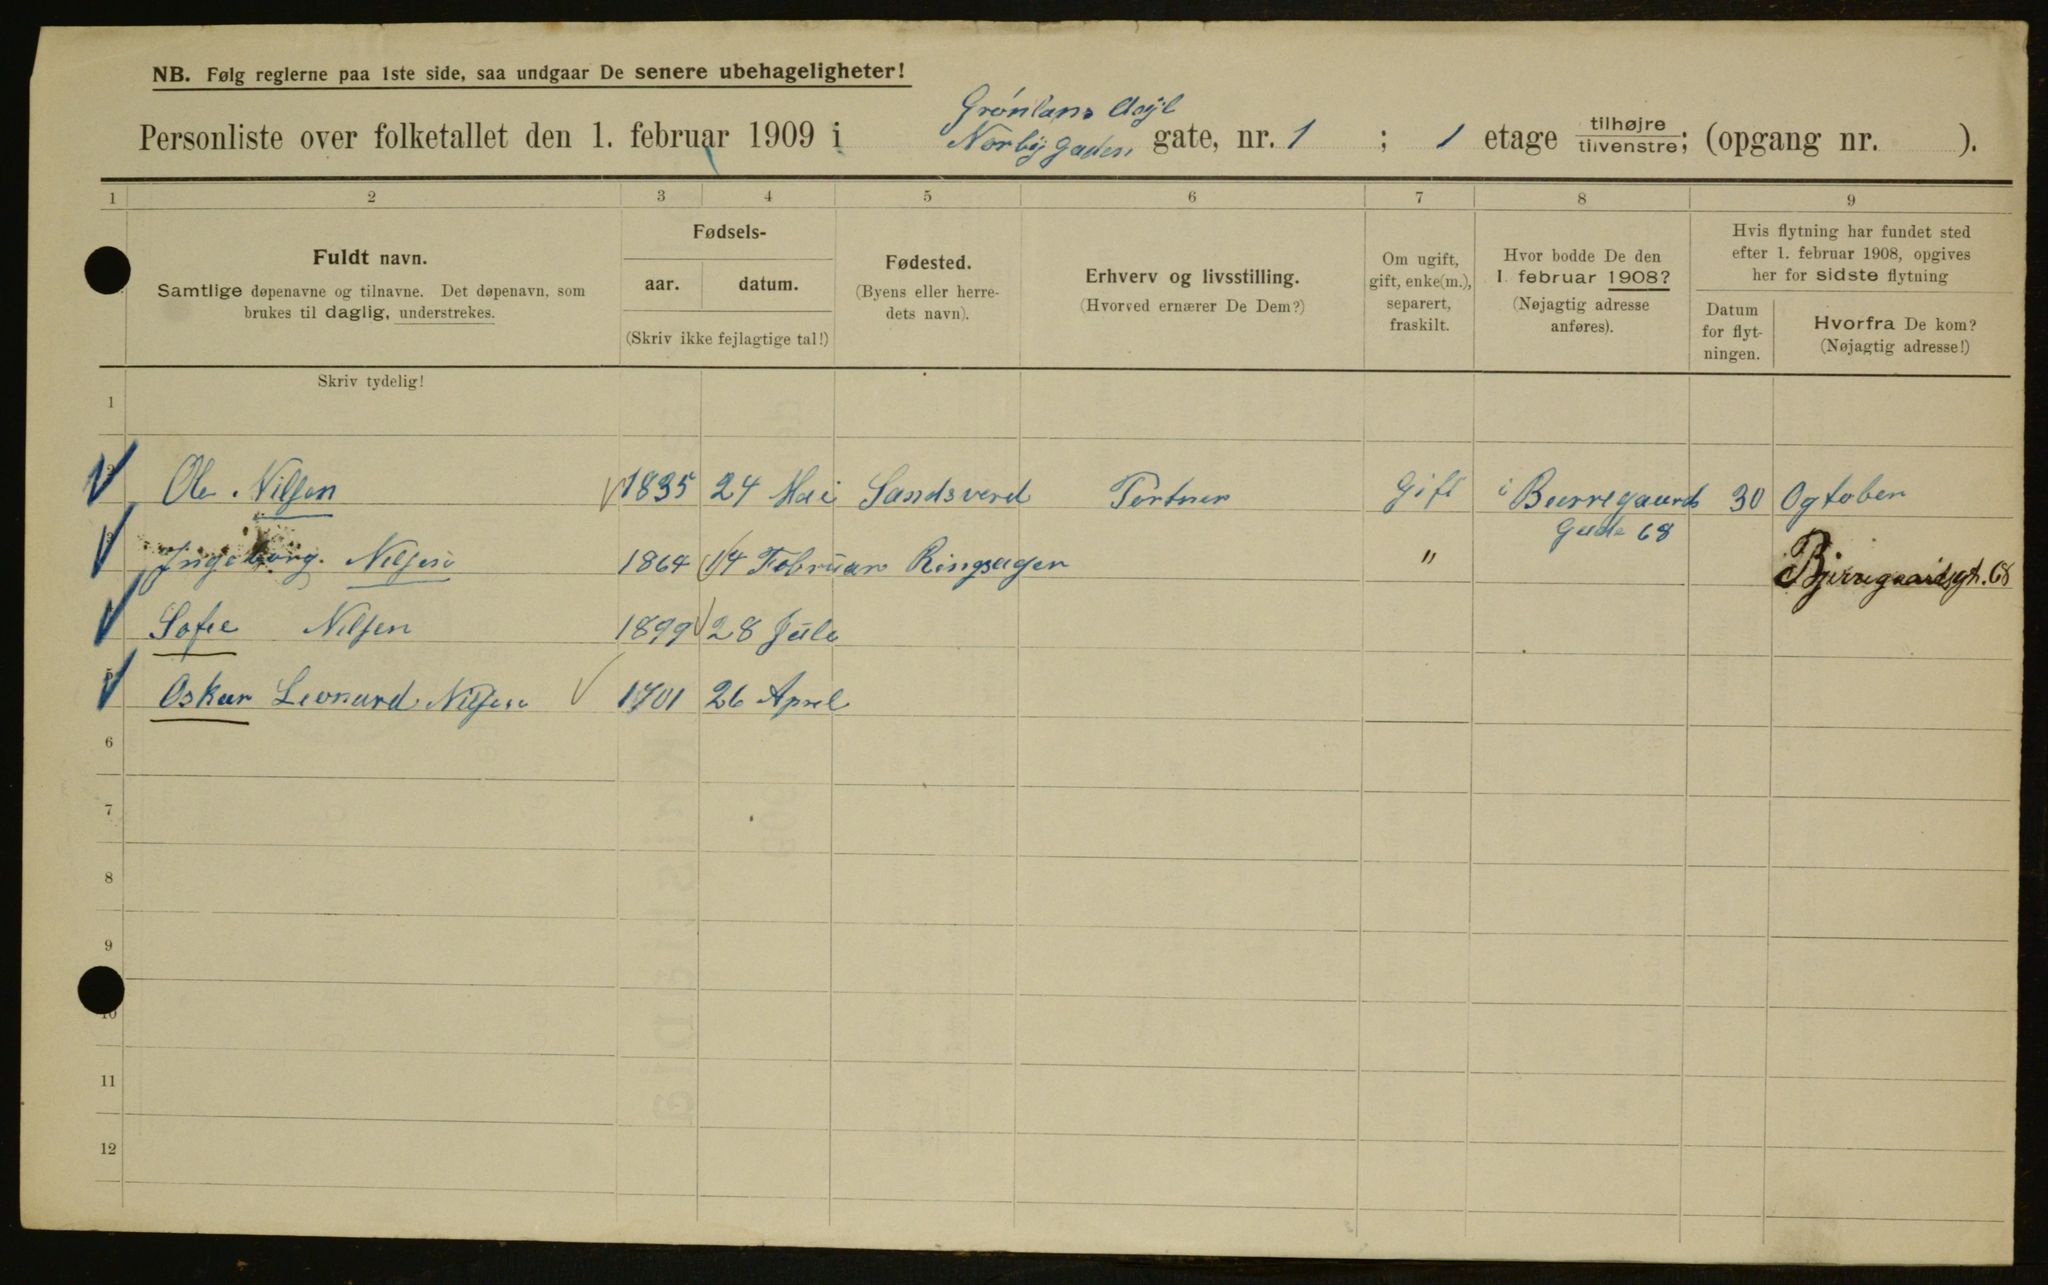 NB. Følg reglerne paa 1ste side, saa undgaar De senere ubehageligheter!
Grønlans Asyl
Personliste over folketallet den 1. februar 1909 i Norbÿ Gaden gate, nr. 1 ; 1 etage tilhøjre tilvenstre; (opgang nr. ).
1 2 3 4 5 6 7 8 9
Fuldt navn.
Samtlige døpenavne og tilnavne. Det døpenavn, som
brukes til daglig, understrekes.
Fødsels-
aar. datum.
(Skriv ikke fejlagtige tal!)
Fødested.
(Byens eller herre-
dets navn).
Erhverv og livsstilling.
(Hvorved ernærer De Dem?)
Om ugift,
gift, enke(m.),
separert,
fraskilt.
Hvor bodde De den
1. februar 1908?
(Nøjagtig adresse
anføres).
Hvis flytning har fundet sted
efter 1. februar 1908, opgives
her for sidste flytning
Datum
for flyt-
ningen.
Hvorfra De kom?
(Nøjagtig adresse!)
Skriv tydelig!
1
Ole Nilsen 1835 24 Mai Sandsverd Portner Gift i Bærregaards 30 Ogtober
Gade 68
Ingeborg Nilsen 1864 14 Februar Ringsager " Bjerregaardsgt. 68
Sofie Nilsen 1899 28 Juli
5 Oskar Leonard Nilsen 1901 26 Aprel
6
7
8
9
10
11
12